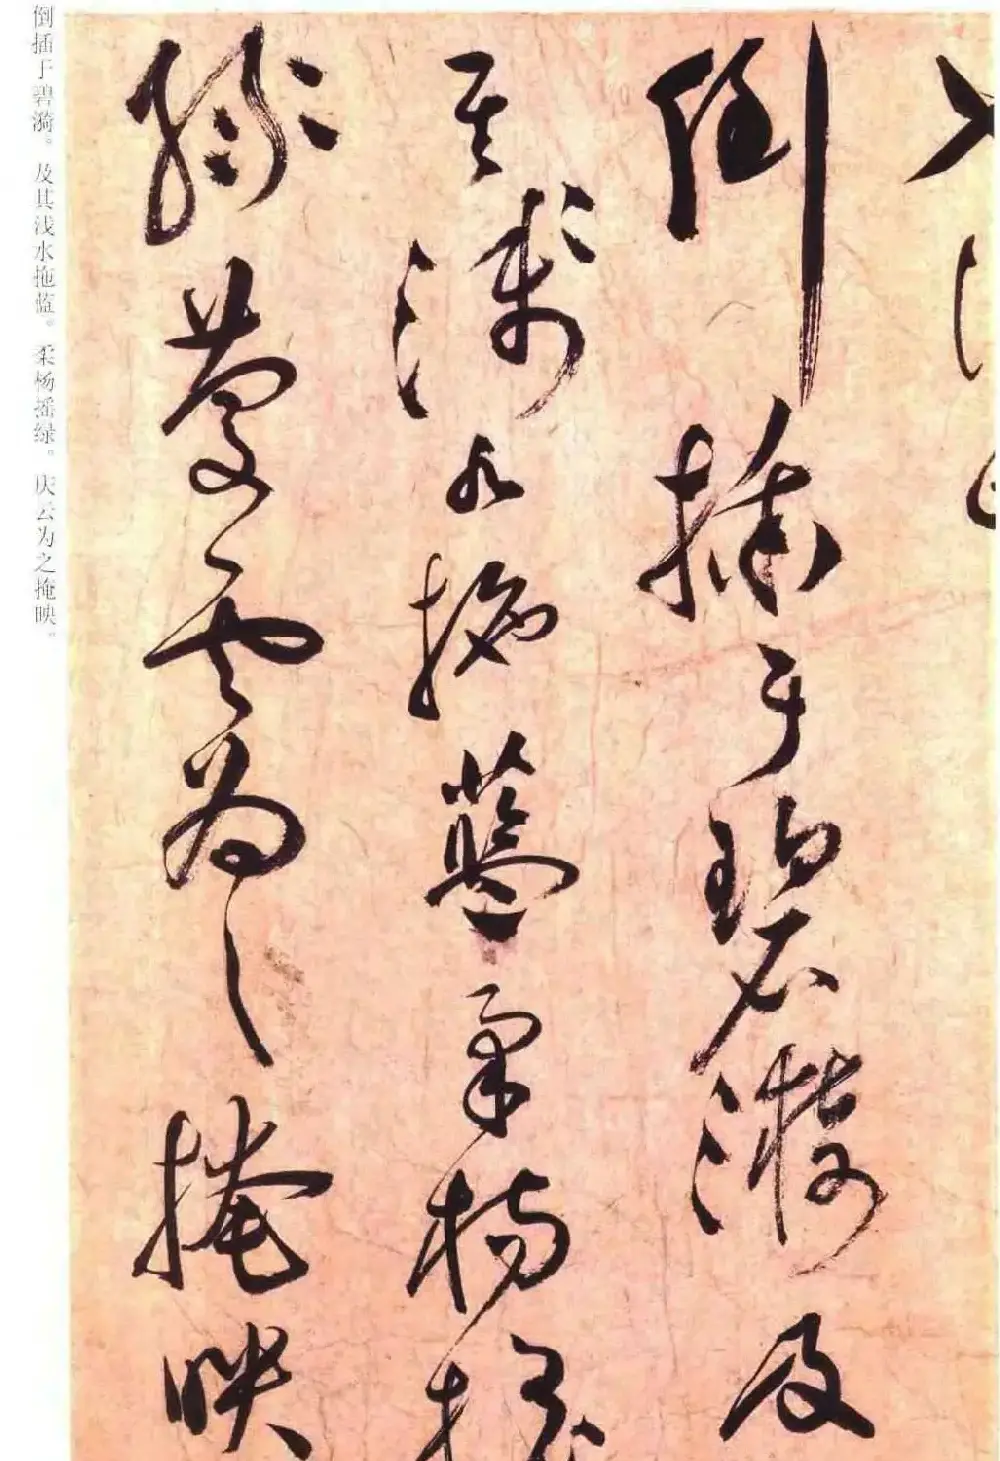 倒插于碧漪及
其浅水拖蓝柔杨摇
绿庆云为之掩映
倒插于碧漪。及其浅水拖蓝。柔杨摇绿。庆云为之掩映。